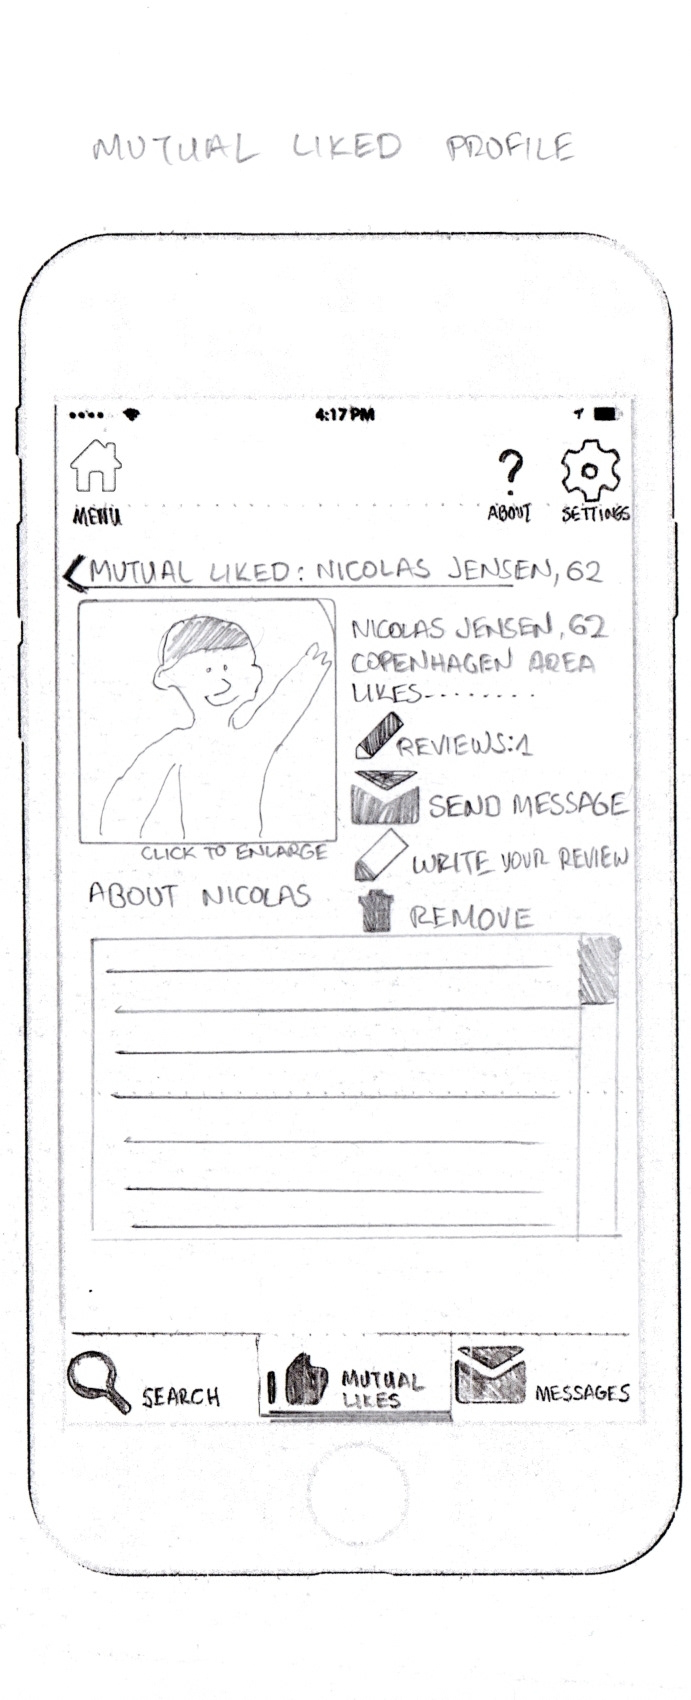 MUTUAL LIKED PROFILE
4:17 PM
MENU
ABOUT
SETTINGS
MUTUAL LIKED: NICOLAS JENSEN, 62
NICOLAS JENSEN, 62
COPENHAGEN AREA
LIKES---------
REVIEWS:1
SEND MESSAGE
CLICK TO ENLARGE
WRITE YOUR REVIEW
ABOUT NICOLAS
REMOVE
SEARCH
MUTUAL
LIKES
MESSAGES